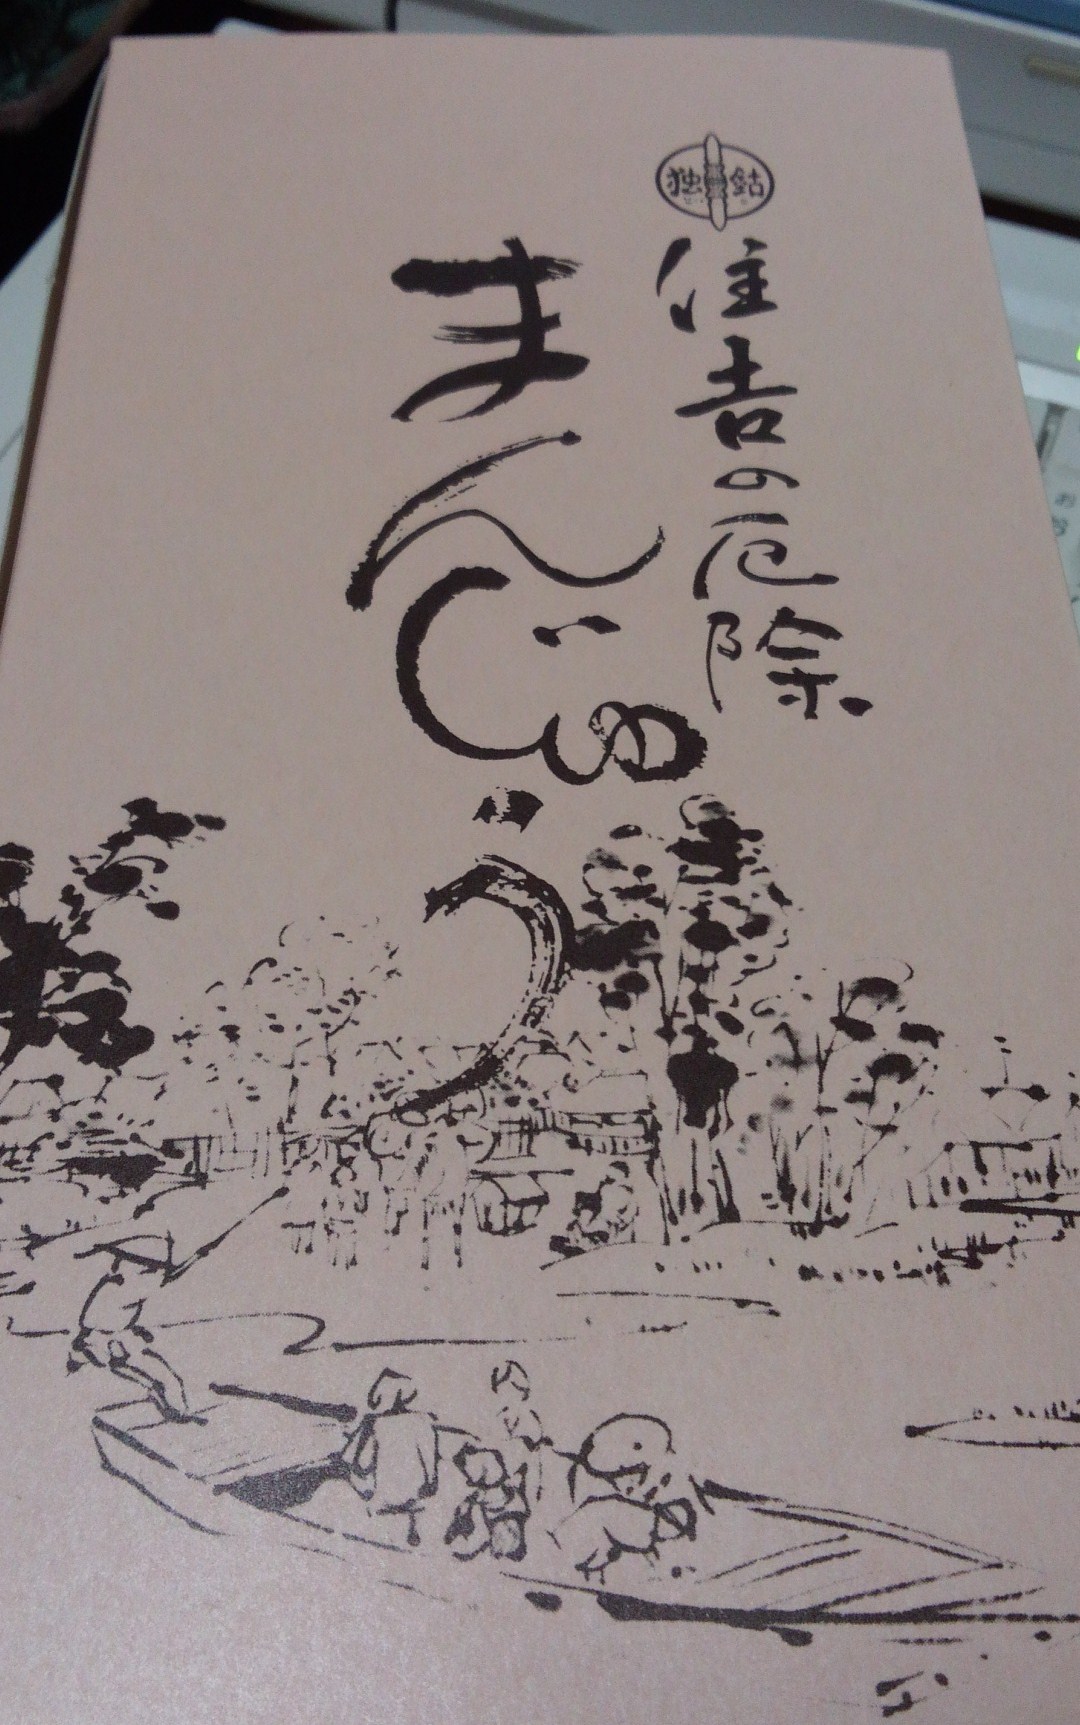 独鈷
住吉の厄除
まんじゅう